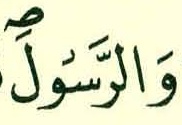 وَالرَّسُولَۖ